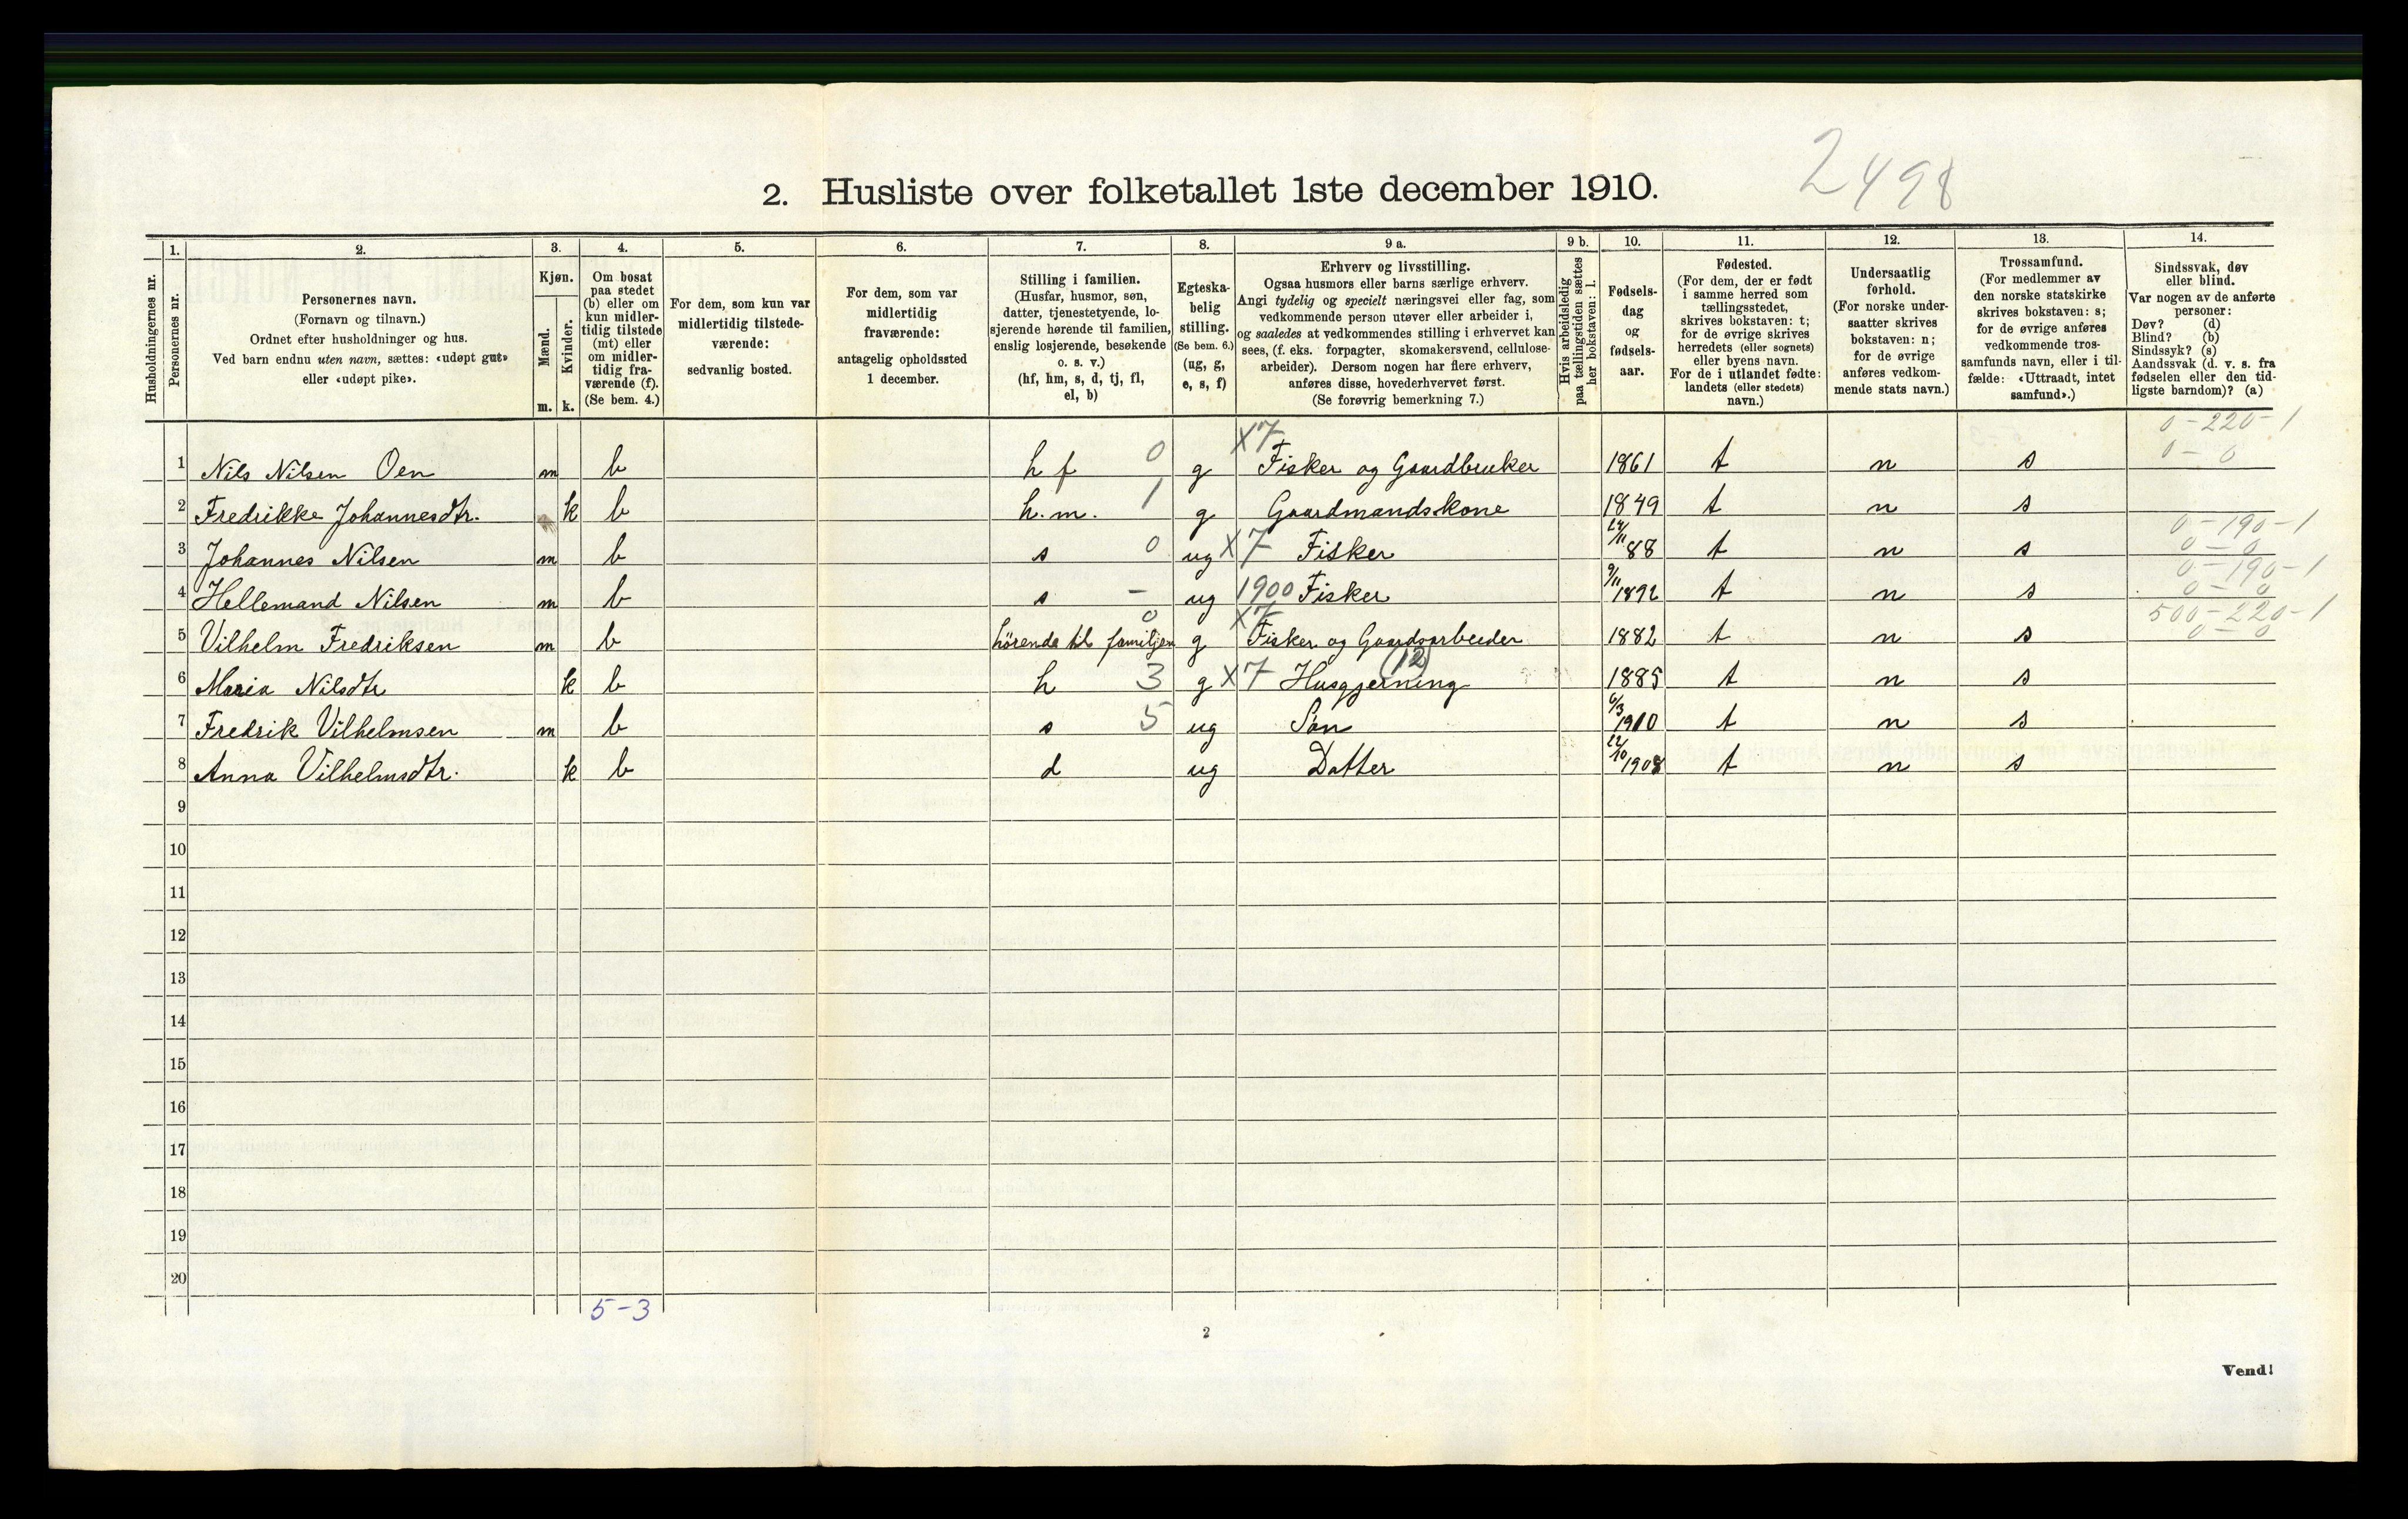 2498
2. Husliste over folketallet 1ste december 1910.
1. 2. 3. 4. 5. 6. 7. 8. 9 a. 9 b. 10. 11. 12. 13. 14.
Husholdningernes nr.
Personernes nr.
Personernes navn.
(Fornavn og tilnavn.)
Ordnet efter husholdninger og hus.
Ved barn endnu uten navn, sættes: «udøpt gut»
eller «udøpt pike».
Kjøn.
Mænd.
Kvinder.
m. k.
Om bosat
paa stedet
(b) eller om
kun midler-
tidig tilstede
(mt) eller
om midler-
tidig fra-
værende (f).
(Se bem. 4.)
For dem, som kun var
midlertidig tilstede-
værende:
sedvanlig bosted.
For dem, som var
midlertidig
fraværende:
antagelig opholdssted
1 december.
Stilling i familien.
(Husfar, husmor, søn,
datter, tjenestetyende, lo-
sjerende hørende til familien,
enslig losjerende, besøkende
o. s. v.)
(hf, hm, s, d, tj, fl,
el, b)
Egteska-
belig
stilling.
(Se bem. 6.)
(ug, g,
e, s, f)
Erhverv og livsstilling.
Ogsaa husmors eller barns særlige erhverv.
Angi tydelig og specielt næringsvei eller fag, som
vedkommende person utøver eller arbeider i,
og saaledes at vedkommendes stilling i erhvervet kan
sees, (f. eks. forpagter, skomakersvend, cellulose-
arbeider). Dersom nogen har flere erhverv,
anføres disse, hovederhvervet først.
(Se forøvrig bemerkning 7.)
Hvis arbeidsledig
paa tællingstiden sættes
her bokstaven: l.
Fødsels-
dag
og
fødsels-
aar.
Fødested.
(For dem, der er født
i samme herred som
tællingsstedet,
skrives bokstaven: t;
for de øvrige skrives
herredets (eller sognets)
eller byens navn.
For de i utlandet fødte:
landets (eller stedets)
navn.)
Undersaatlig
forhold.
(For norske under-
saatter skrives
bokstaven: n;
for de øvrige
anføres vedkom-
mende stats navn.)
Trossamfund.
(For medlemmer av
den norske statskirke
skrives bokstaven: s;
for de øvrige anføres
vedkommende tros-
samfunds navn, eller i til-
fælde: «Uttraadt, intet
samfund».)
Sindssvak, døv
eller blind.
Var nogen av de anførte
personer:
Døv? (d)
Blind? (b)
Sindssyk? (s)
Aandssvak (d. v. s. fra
fødselen eller den tid-
ligste barndom)? (a)
0-220-1
0-0
1 Nils Nilsen Oen m b h f 0 g X7 Fisker og Gaardbruker 1861 t n s
2 Fredrikke Johannesdtr. k b h.m. 1 g Gaardmandskone 1849 t n s
0-190-1
0-0
3 Johannes Nilsen m b s 0 ug X7 Fisker 24/11 88 t n s
0-190-1
0-0
4 Hellemand Nilsen m b s - ug 1900 Fisker 9/11 1892 t n s
500-220-1
0-0
5 Vilhelm Fredriksen m b hörende til familjen 0 g X7 Fisker og Gaardsarbeider 1882 t n s
6 Maria Nilsdtr k b h 3 g X7 Husgjerning (12) 1885 t n s
7 Fredrik Vilhelmsen m b s 5 ug Søn 6/3 1910 t n s
8 Anna Vilhelmsdtr. k b d ug Datter 22/10 1908 t n s
9
10
11
12
13
14
15
16
17
18
19
20
5-3
2
Vend!